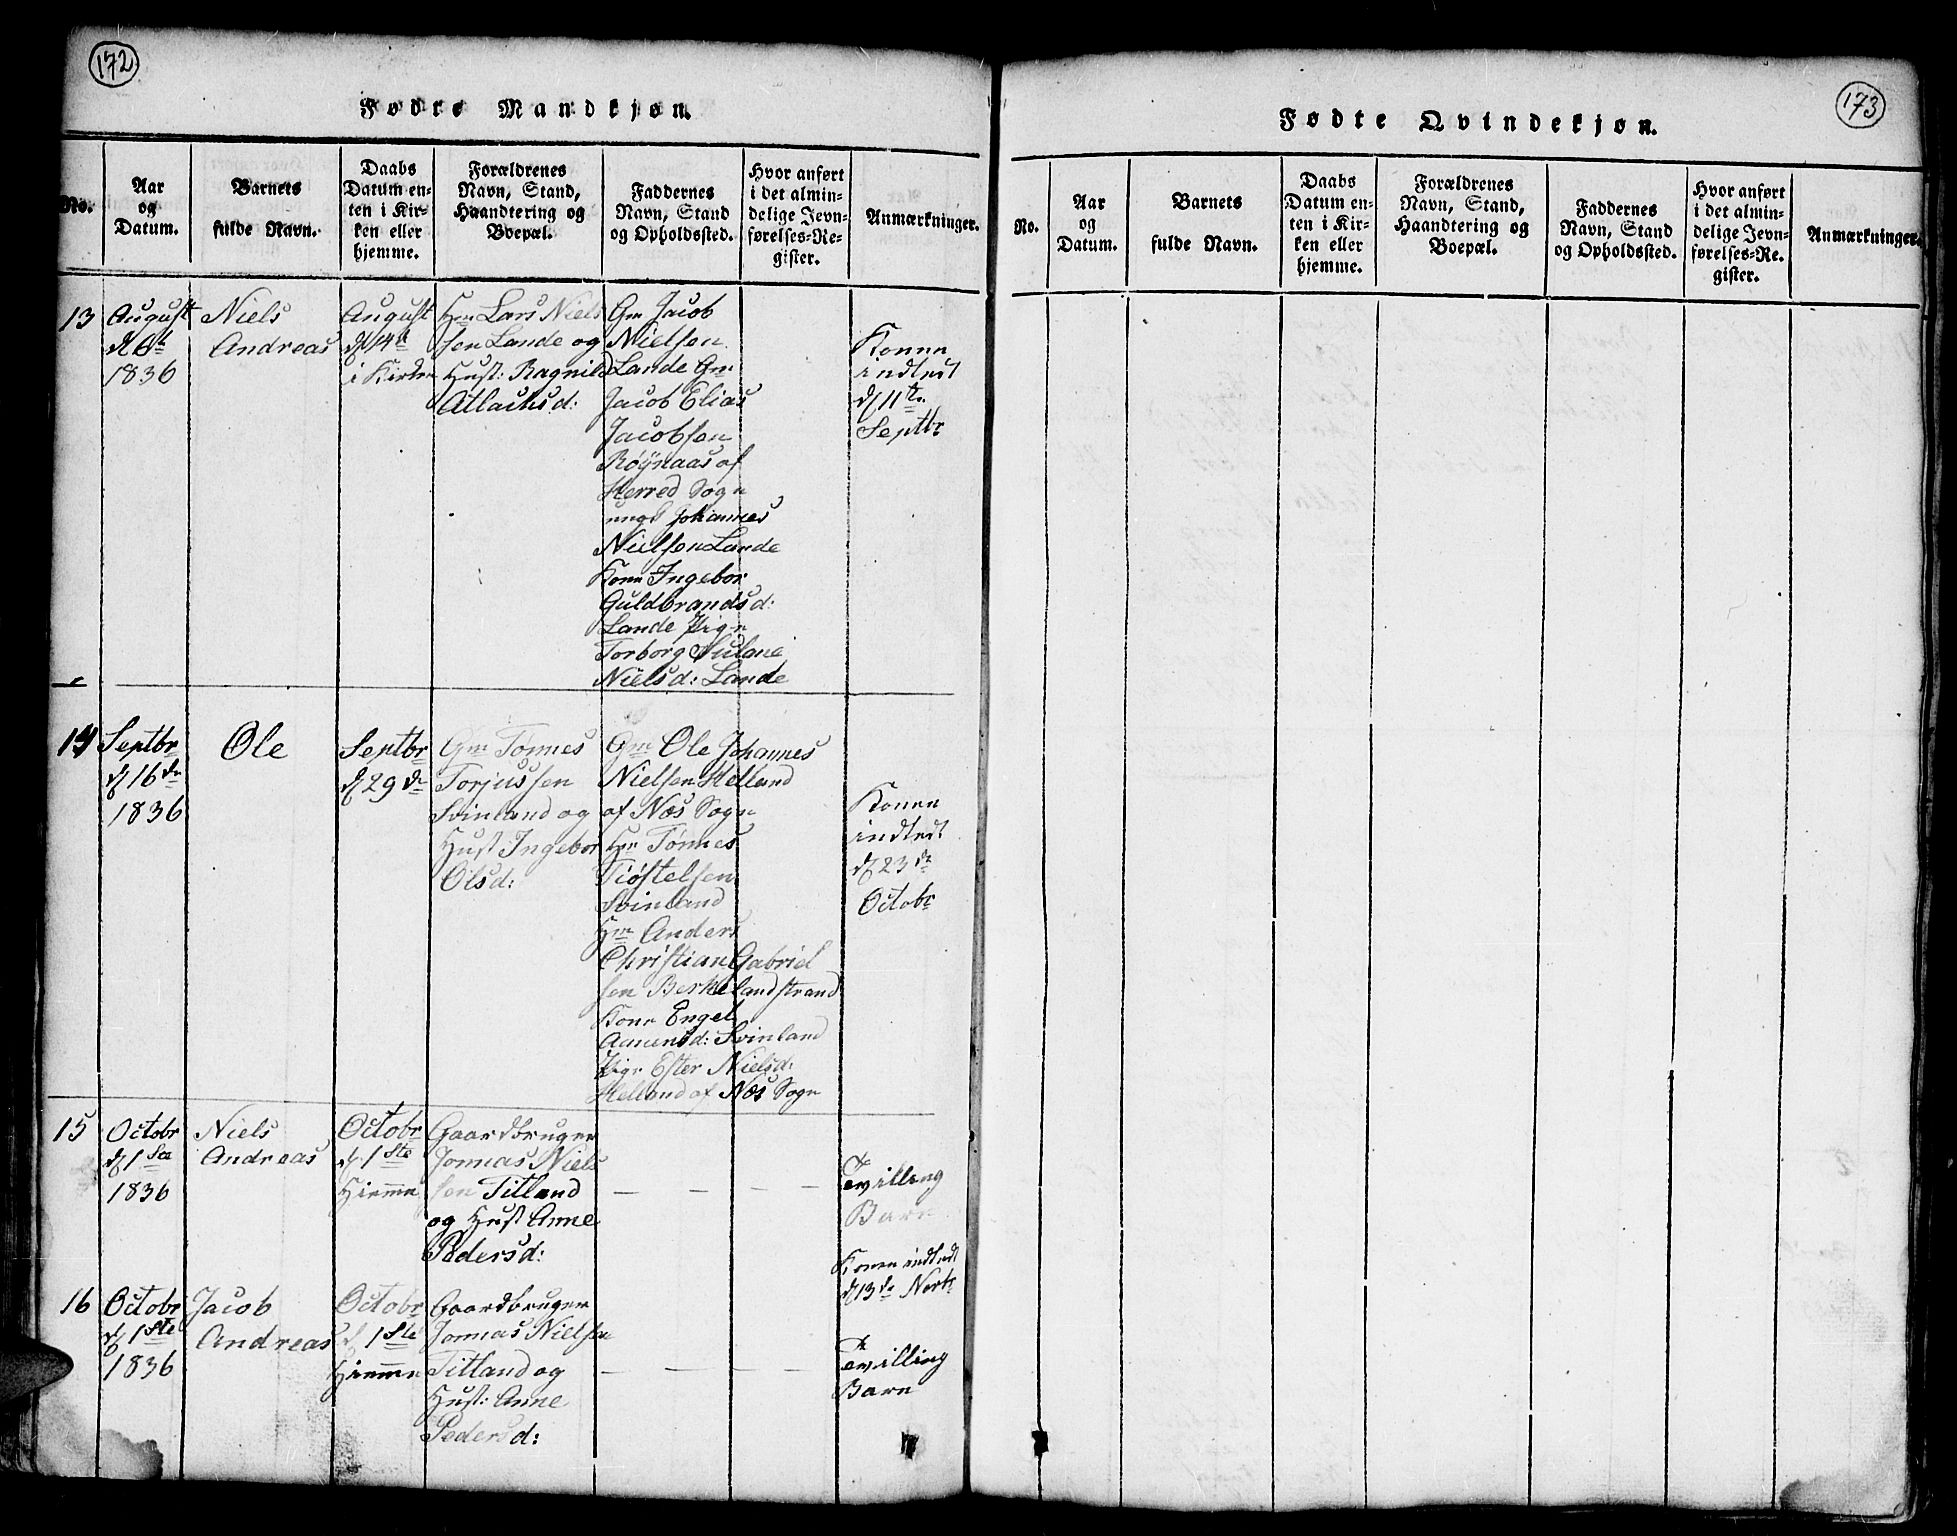 172
Fødte Mandkjøn.
No.
Aar
og
Datum.
Barnets
fulde Navn.
Daabs
Datum en-
ten i Kir-
ken eller
hjemme.
Forældrenes
Navn, Stand,
Haandtering og
Boepæl.
Faddernes
Navn, Stand
og Opholdssted.
Hvor anført
i det almin-
delige Jevn-
førelses-Re-
gister.
Anmærkninger.
13
August
d 6t
1836
Niels
Andreas
August
d 14de
i Kirken
Hm Lars Niels
sen Lande og
Hust: Ragnild
Atlachsd:
Gm Jacob
Nielsen
Lande Gm
Jacob Elias
Jacobsen
Røÿnaas af
Herred Sogn
ungk Johannes
Nielsen Lande
Kone Ingebor
Guldbrandsd:
Lande Pige
Torborg Julane
Nielsd: Lande
Konen
indledt
d 11te
Septbr
14
Septbr
d 16de
1836
Ole
Septbr
d 29de
Gm Tønnes
Torjussen
Svinland og
Hust Ingebor
Olsd:
Gm Ole Johannes
Nielsen Helland
af Næs Sogn
Hm Tønnes
Tiøstelsen
Svinland
Hm Anders
Christian Gabriel
sen Berkelandstrand
Kone Engel
Aamensd: Svinland
Pige Ester Nielsd:
Helland af Næs Sogn
Konen
indledt
d 23de
Octobr
15
Octobr
d 1ste
1836
Niels
Andreas
Octobr
d 1ste
Hiemme
Gaardbruger
Jonnas Niels
sen Titland
og Hust Anne
Pedersd:
Tewilling
Barn
Konen indledt
d 13de Novbr
16
Octobr
d 1ste
1836
Jacob
Andreas
Octobr
d 1ste
Hiemme
Gaardbruger
Jonnas Nielsen
Titland og
Hust: Anne
Pedersd:
Tewilling
Barn
173
Fødte Qvindekjøn.
No.
Aar
og
Datum.
Barnets
fulde Navn.
Daabs
Datum en-
ten i Kir-
ken eller
hjemme.
Forældrenes
Navn, Stand,
Haandtering og
Boepæl.
Faddernes
Navn, Stand
og Opholdssted.
Hvor anført
i det almin-
delige Jevn-
førelses-Re-
gister.
Anmærkninger.